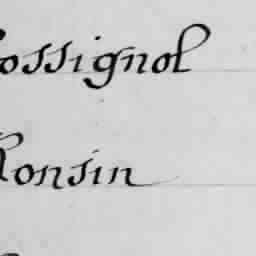 ossignol
Ronsin